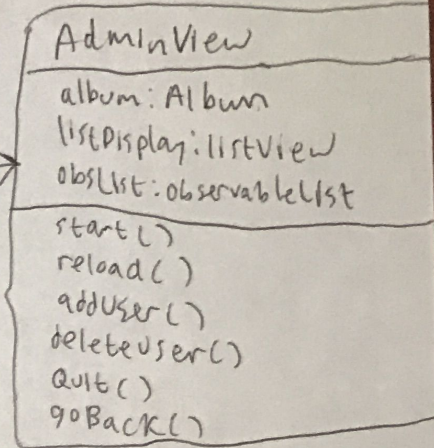 AdminView
album: Album
listDisplay: listView
obsList: observableList
start()
reload()
addUser()
deleteUser()
Quit()
goBack()